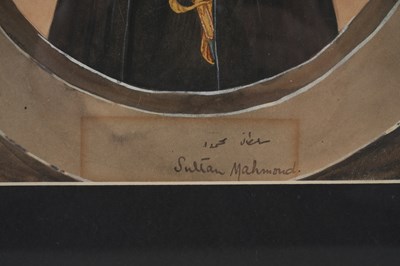 سلطان محمود
Sultan Mahmoud.